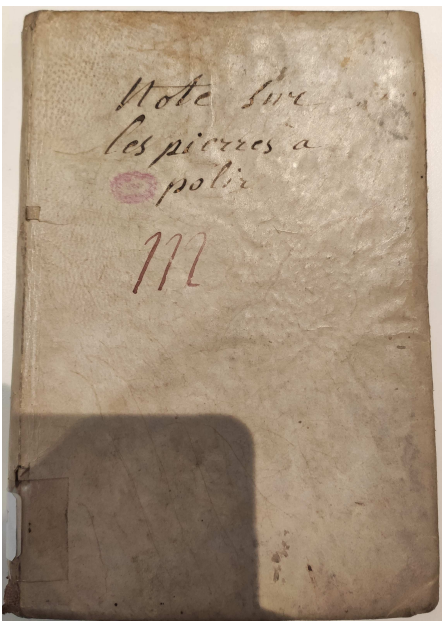 Note sur
les pierres a
polir
m